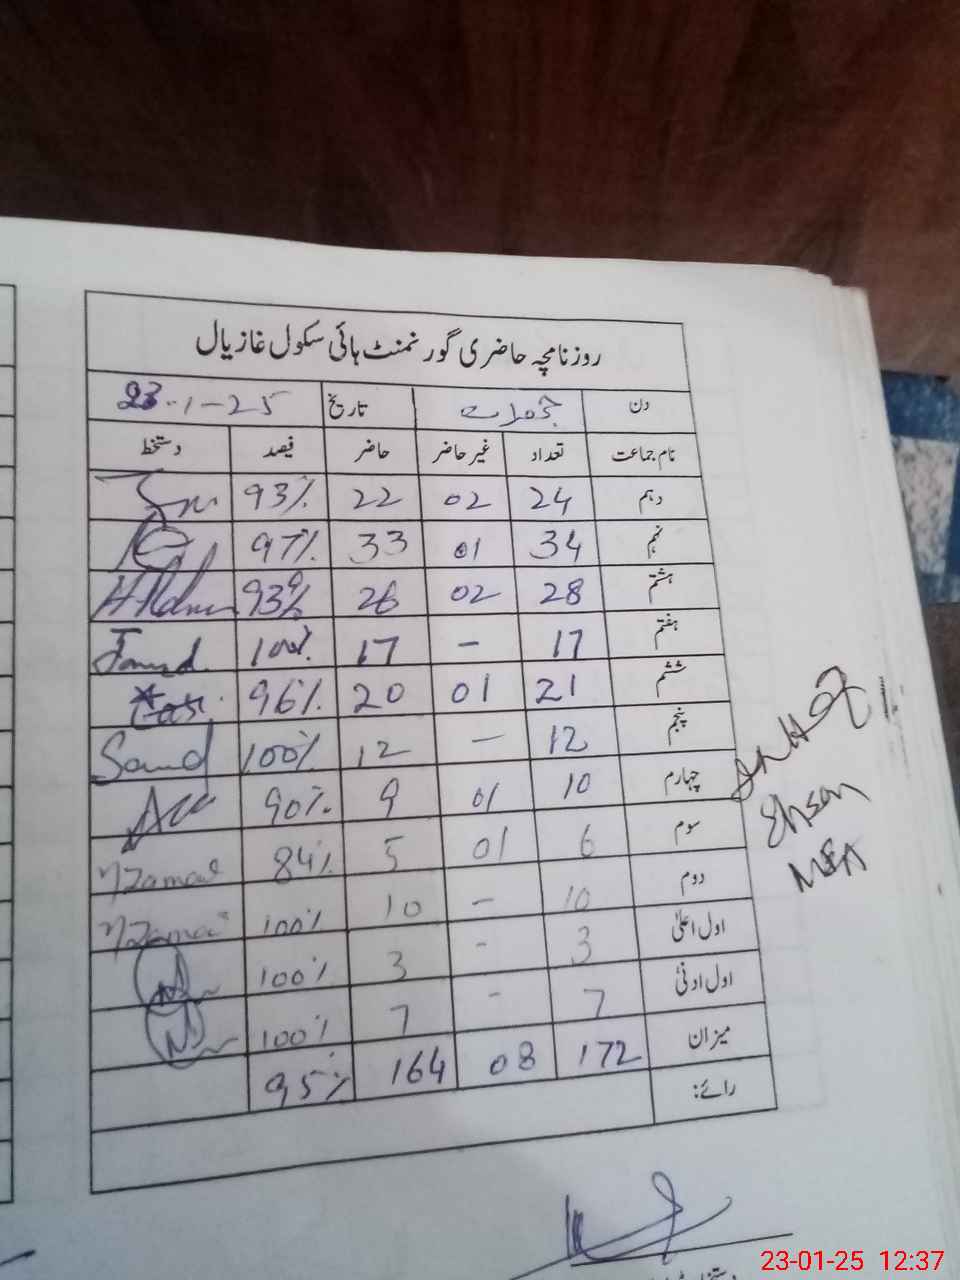 روزنامچہ حاضری گورنمنٹ ہائی سکول غازیال
دن جمعرات تاریخ 23-1-25
نام جماعت تعداد غیر حاضر حاضر فیصد دستخط
دہم 24 02 22 93%
نہم 34 01 33 97%
ہشتم 28 02 26 93%
ہفتم 17 - 17 100%
ششم 21 01 20 96%
پنجم 12 - 12 100% Saud
چہارم 10 01 9 90%
سوم 6 01 5 84% NZaman
دوم 10 - 10 100% NZaman
اول اعلیٰ 3 - 3 100%
اول ادنیٰ 7 - 7 100%
میزان 172 08 164 95%
رائے:
Ehsan
MEA
23-01-25 12:37